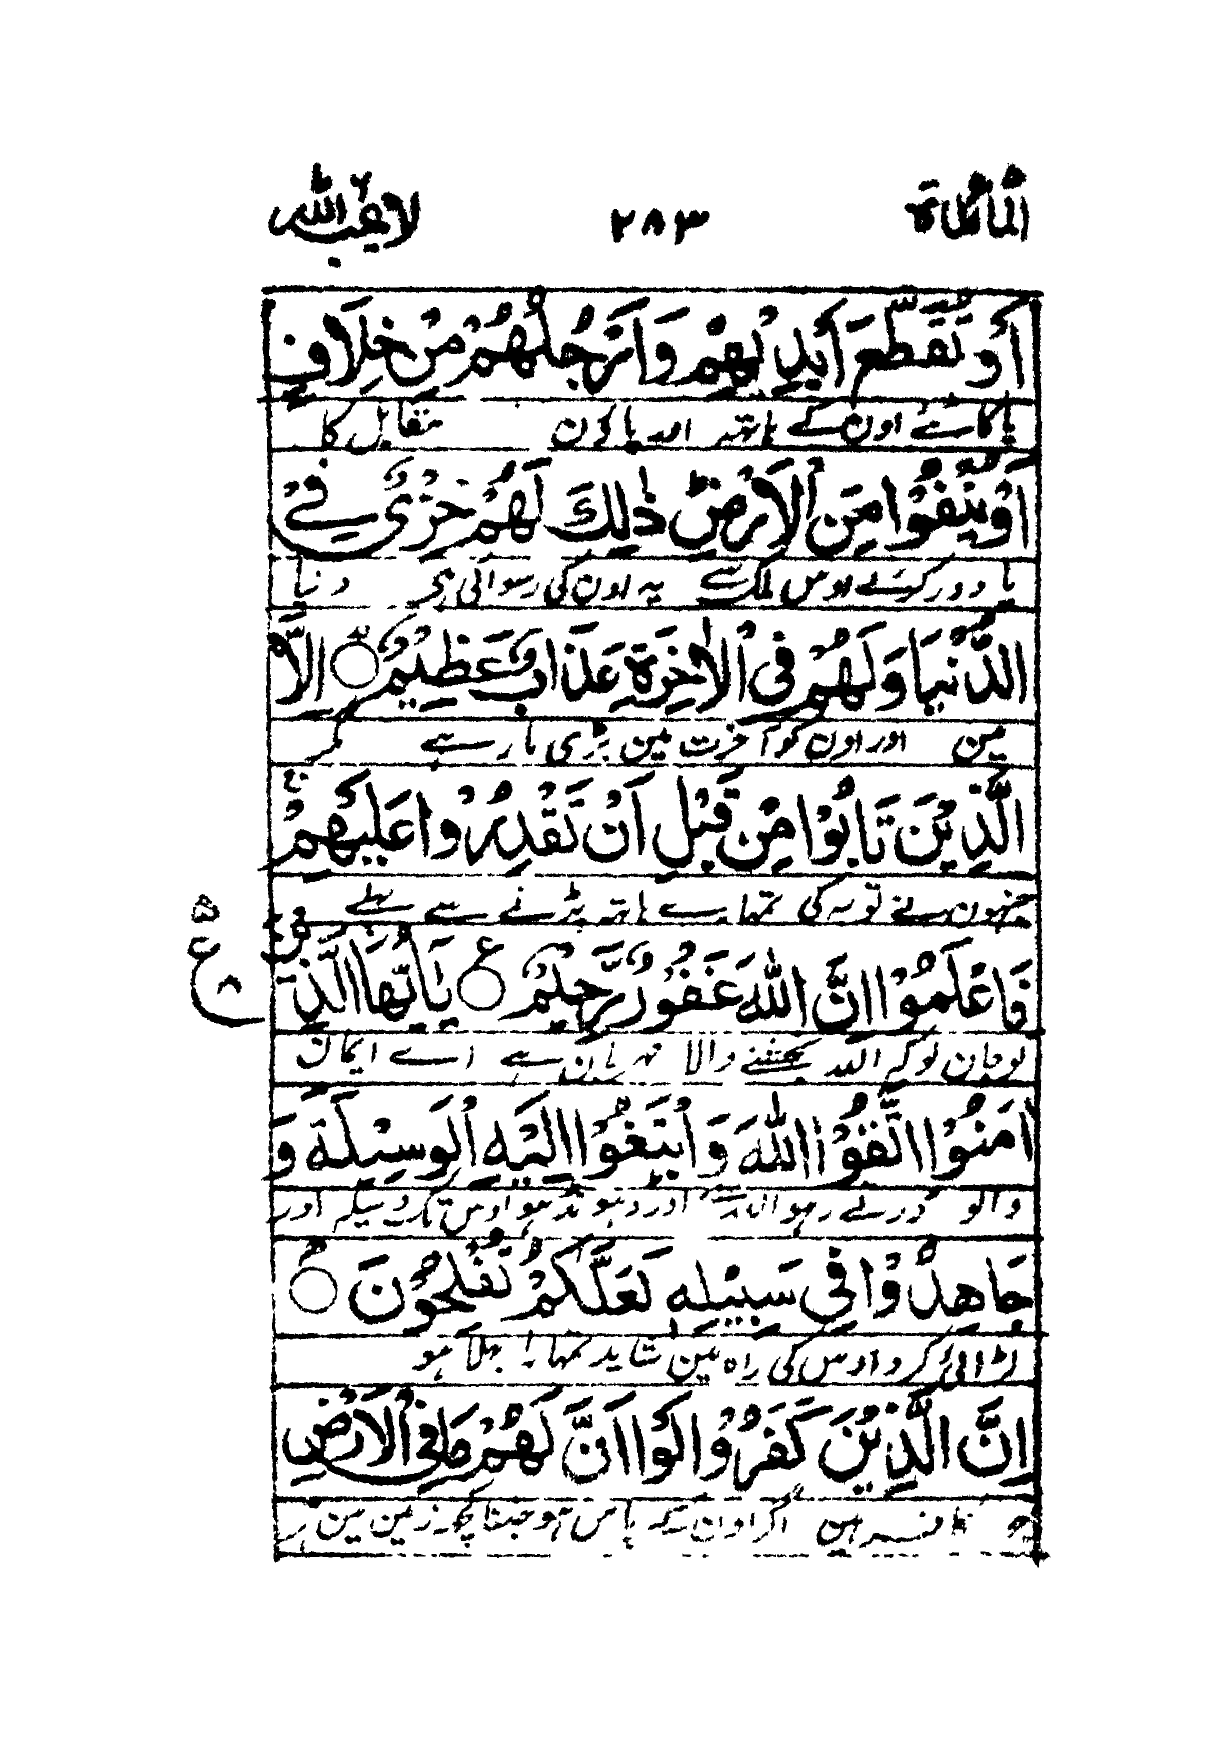 المائدة ٢٨٣ لا يحب الله
أَوْ تُقَطَّعَ أَيْدِيْهِمْ وَأَرْجُلُهُمْ مِنْ خِلَافٍ
یا کاٹے اون کے ہاتھہ اور پاؤن مقابل کا
أَوْ يُنْفَوْا مِنَ الْأَرْضِ ط ذٰلِكَ لَهُمْ خِزْيٌ فِي
یا دور کرئے اوس ملک سے یہ اون کی رسوائی ہی دنیا
الدُّنْيَا وَلَهُمْ فِي الْاٰخِرَةِ عَذَابٌ عَظِيْمٌ ○ اِلَّا
مین اور اون کو آخرت مین بڑی مار ہے مگر
الَّذِيْنَ تَابُوْا مِنْ قَبْلِ اَنْ تَقْدِرُوْا عَلَيْهِمْ ج
جنہون نے توبہ کی تمہارے ہاتھہ پڑنے سے پہلے
فَاعْلَمُوْا اَنَّ اللهَ غَفُوْرٌ رَّحِيْمٌ ○ ع يٰاَيُّهَا الَّذِيْنَ
٥ ع ٨
تو جان لو کہ اللہ بخشنے والا مہربان ہے اے ایمان
اٰمَنُوْا اتَّقُوْا اللهَ وَابْتَغُوْا اِلَيْهِ الْوَسِيْلَةَ وَ
والو ڈرتے رہو اللہ سے اور ڈہونڈہو اوس تک وسیلہ اور
جَاهِدُوْا فِيْ سَبِيْلِهٖ لَعَلَّكُمْ تُفْلِحُوْنَ ○
لڑائی کرو اوس کی راہ مین شاید تمہارا بہلا ہو
اِنَّ الَّذِيْنَ كَفَرُوْا لَوْ اَنَّ لَهُمْ مَا فِي الْاَرْضِ
جو کافر ہین اگر اون کے پاس ہو جتنا کچہہ زمین مین ہے